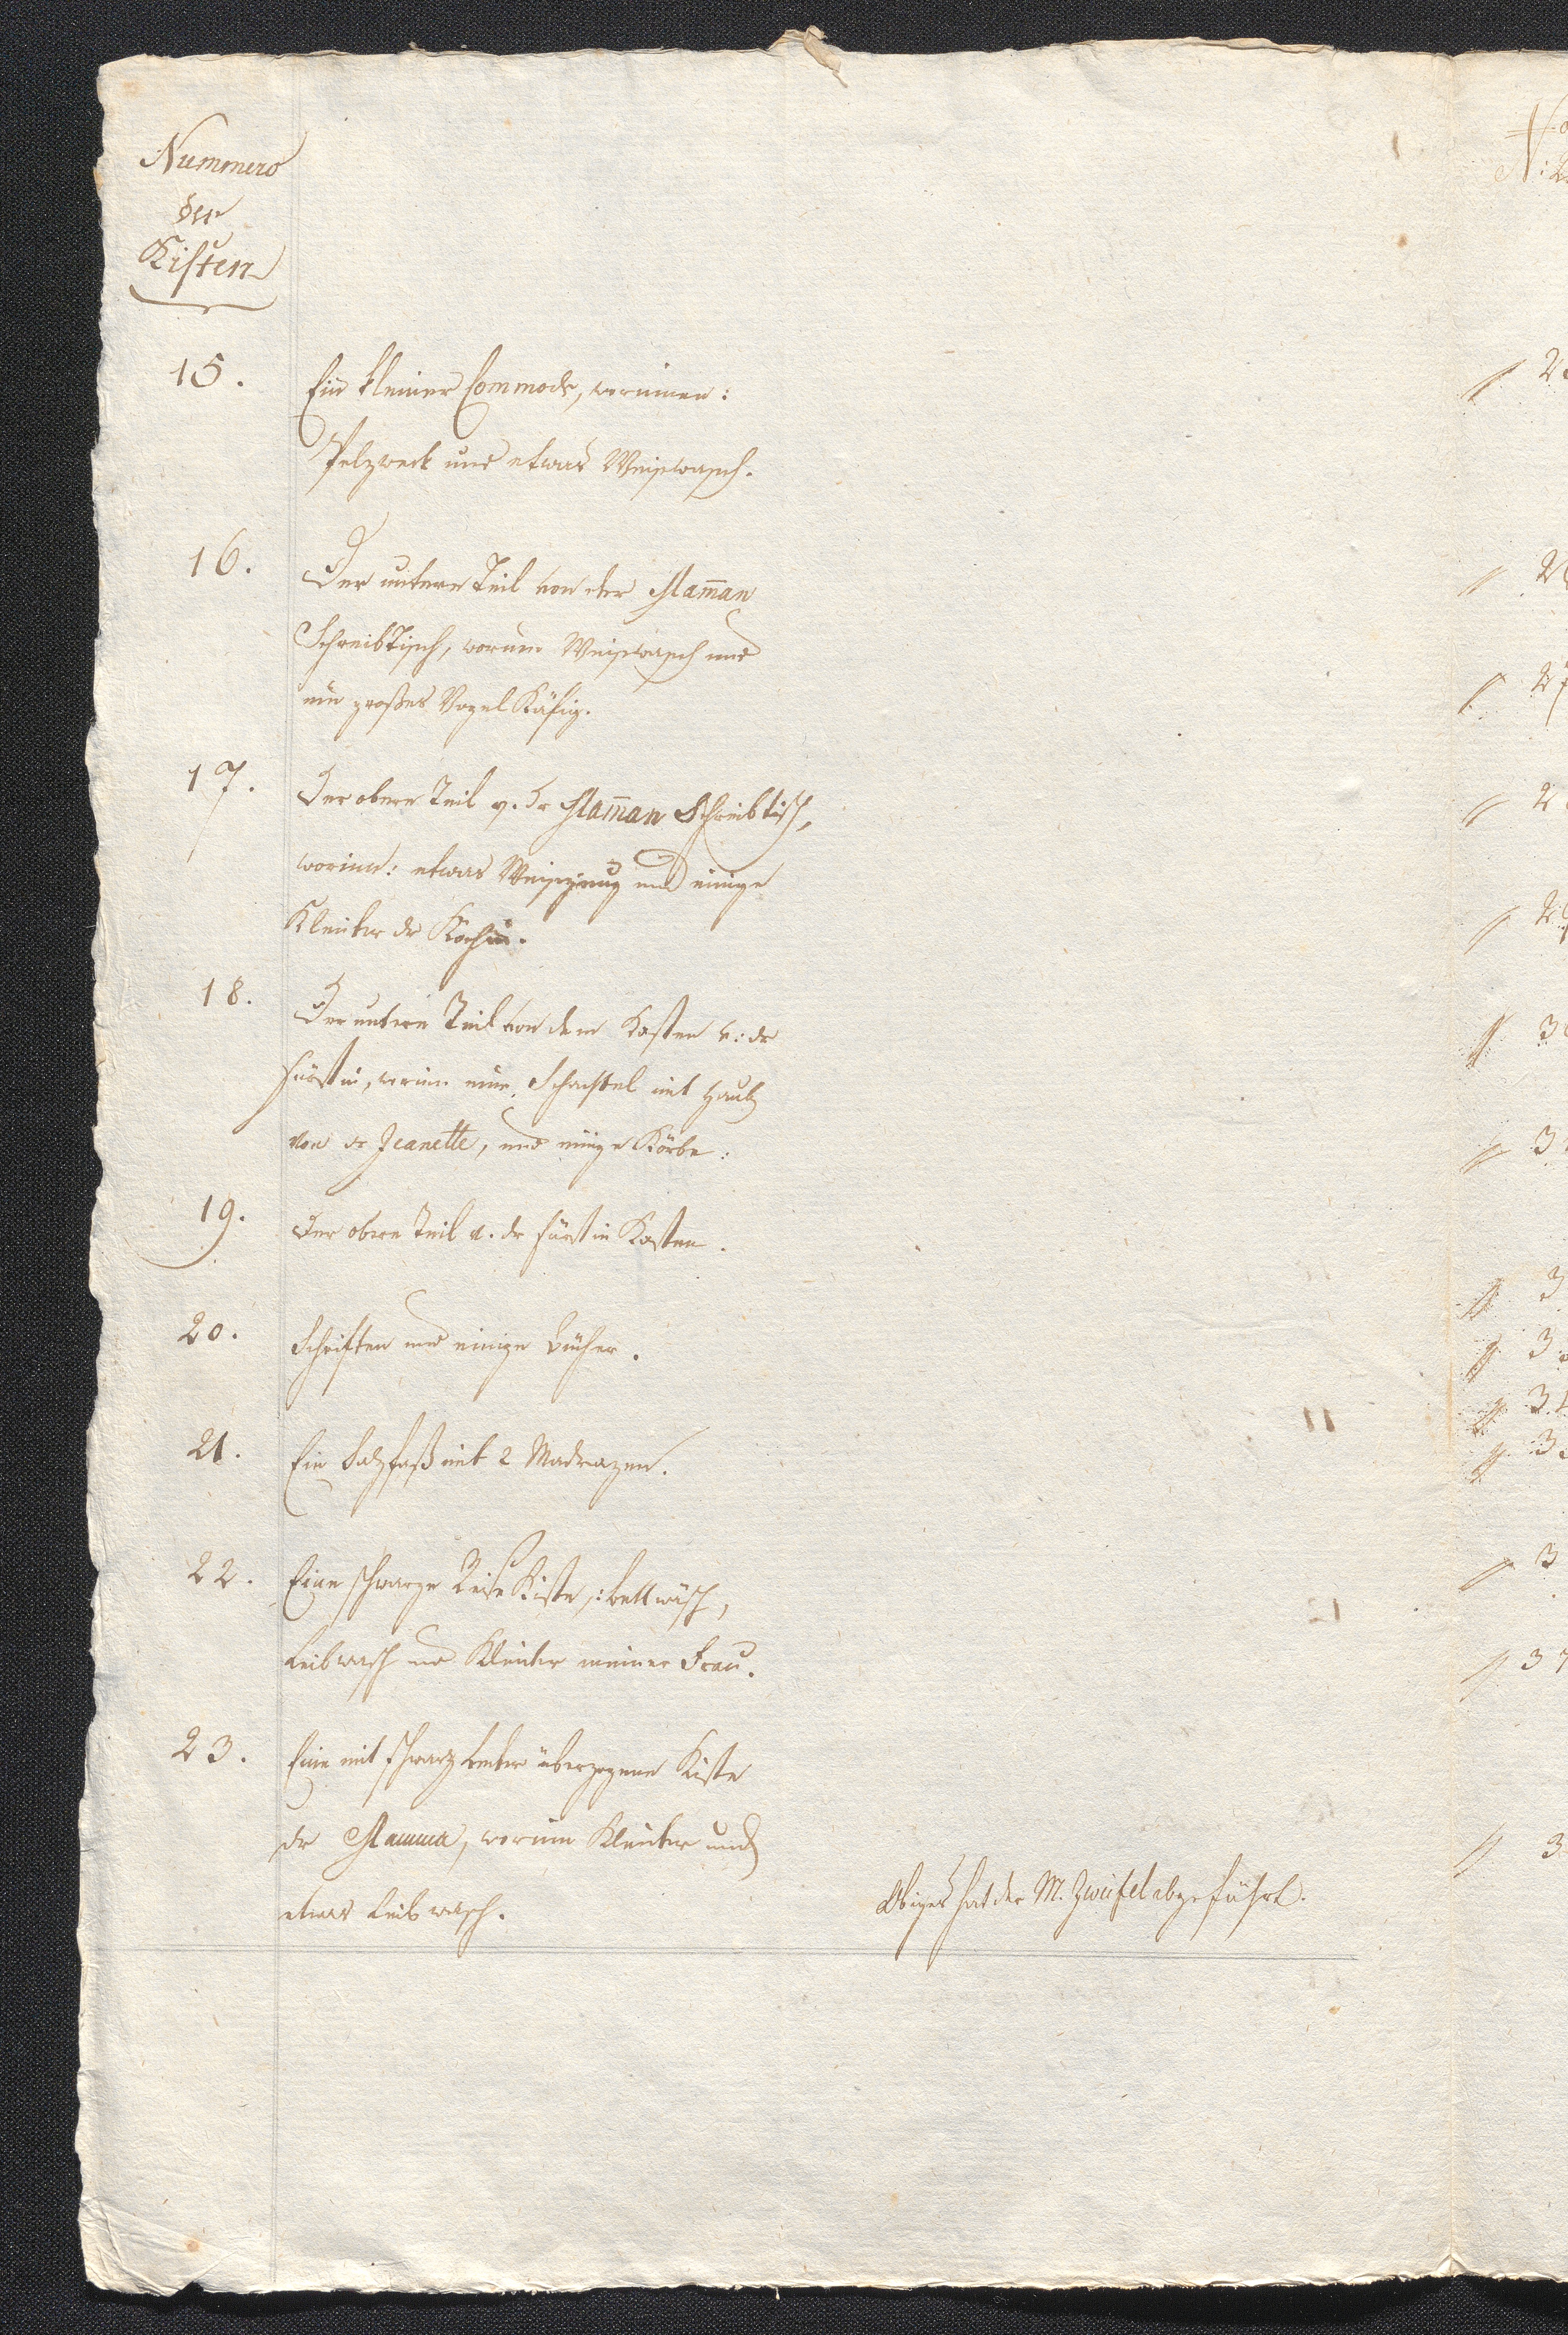 Nummero
der
Kisten
15. Ein kleiner Commode, worinnen:
Pelzwerk und etwas Weiswasch.
16. Der untere Teil von der Mam̅an
Schreibtisch, worinn Weiswasch und
ein großes Vogel Käfig.
17. Der obere Teil v. dr Mam̅an Schreibtisch,
worinn: etwas Weiszeug und einige
Kleider dr Köchin.
18. Der untere Teil von dem Kasten v: dr
Fürstin, worinn eine Schachtel mit Haub
von dr Jeanette, und einige Körbe:
19. Der obere Teil v. dr Fürstin Kasten.
20. Schriften und einige Bücher.
21. Ein Salzfaß mit 2 Madrazen.
22. Eine schwarze Reise Kiste,: bettwäsch,
Leibwasch und Kleider meiner Frau.
23. Eine mit schwarz Leder überzogene Kiste
dr Mamma, worinn Kleider und
etwas Leibwasch.
Obiges hat der M. Zweifel abgeführt.